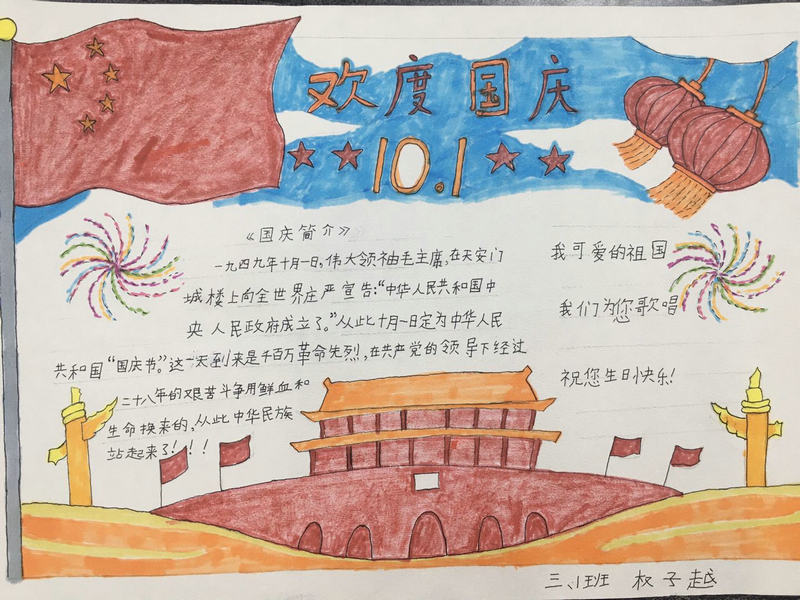 欢度国庆
10.1
《国庆简介》
一九四九年十月一日,伟大领袖毛主席,在天安门
城楼上向全世界庄严宣告:“中华人民共和国中
央人民政府成立了。”从此十月一日定为中华人民
共和国“国庆节。”这一天到来是千百万革命先烈,在共产党的领导下经过
二十八年的艰苦斗争用鲜血和
生命换来的,从此中华民族
站起来了!!!
我可爱的祖国
我们为您歌唱
祝您生日快乐!
三、1班 权子越